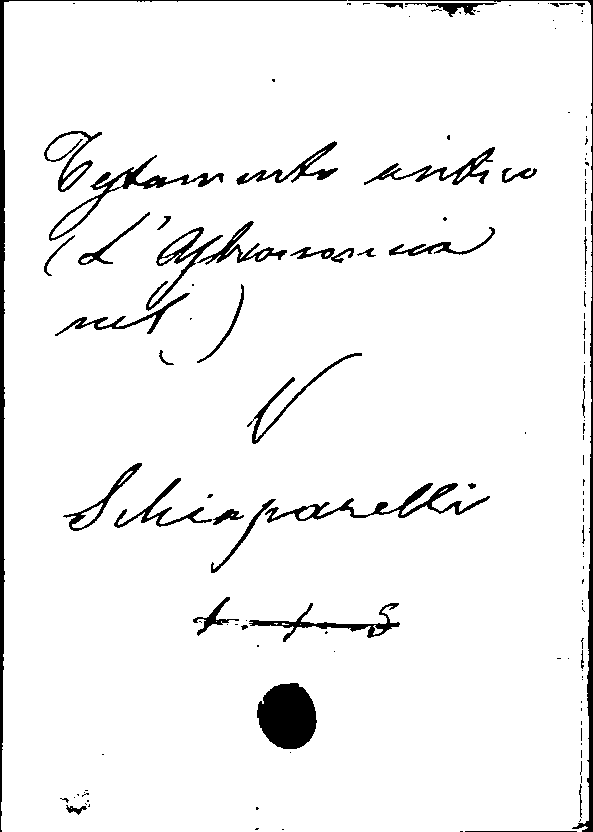 Testamento antico
(L'Astronomia
nel.)
V
Schiaparelli